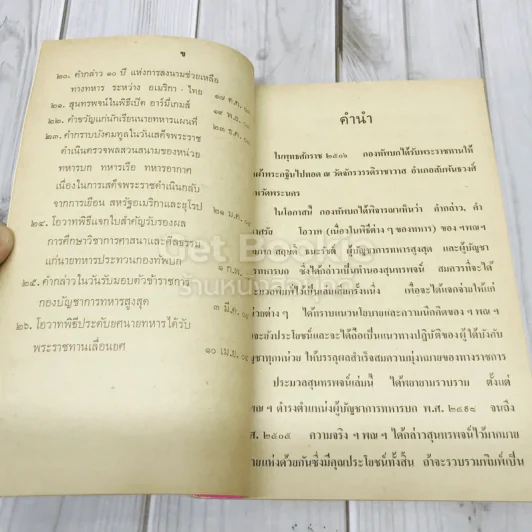 ข
๒๐. คำกล่าว ๑๐ ปี แห่งการลงนามช่วยเหลือ
ทางทหาร ระหว่าง อเมริกา - ไทย
๑๗ ต.ค.
๒๑. สุนทรพจน์ในพิธีเปิด อาร์มี่เกมส์
๑๙ พ.ย.
๒๒. คำขวัญแก่นักเรียนนายทหารแผนที่
๒๓ ธ.ค.
๒๓. คำกราบบังคมทูลในวันเสด็จพระราช
ดำเนินตรวจพลสวนสนามของหน่วย
ทหารบก ทหารเรือ ทหารอากาศ
เนื่องในการเสด็จพระราชดำเนินกลับ
จากการเยือน สหรัฐอเมริกาและยุโรป
๒๑ ม.ค.
๒๔. โอวาทพิธีแจกใบสำคัญรับรองผล
การศึกษาวิชาการศาสนาและศีลธรรม
แก่นายทหารประทวนกองทัพบก
๑ ก.ค.
๒๕. คำกล่าวในวันรับมอบตัวข้าราชการ
กองบัญชาการทหารสูงสุด
๓ มี.ค. ๐๕
๒๖. โอวาทพิธีประดับยศนายทหารได้รับ
พระราชทานเลื่อนยศ
๑๐ เม.ย. ๐๕
คำนำ
ในพุทธศักราช ๒๕๐๖ กองทัพบกได้รับพระราชทานให้
ผ้าพระกฐินไปทอด ณ วัดจักรวรรดิราชาวาส อำเภอสัมพันธวงศ์
หวัดพระนคร
ในโอกาสนี้ กองทัพบกได้พิจารณาเห็นว่า คำกล่าว, คำ
ศรัย โอวาท (เนื่องในพิธีต่าง ๆ ของทหาร) ของ ฯพณฯ
สฤษดิ์ ธนะรัชต์ ผู้บัญชาการทหารสูงสุด และผู้บัญชา
รทหารบก ซึ่งได้กล่าวเป็นทำนองสุนทรพจน์ สมควรที่จะได้
พิมพ์ไว้เป็นเล่มสักครั้งหนึ่ง เพื่อจะได้แจกจ่ายให้แก่
ต่าง ๆ ได้ทราบแนวนโยบายและความนึกคิดของ ฯพณฯ
จะยังประโยชน์และจะได้ถือเป็นแนวทางปฏิบัติของผู้ใต้บังคับ
ญชาทุกหน่วย ให้บรรลุผลสำเร็จสมความมุ่งหมายของทางราชการ
ประมวลสุนทรพจน์เล่มนี้ ได้พยายามรวบรวม ตั้งแต่
พณฯ ดำรงตำแหน่งผู้บัญชาการทหารบก พ.ศ. ๒๔๙๘ จนถึง
ศ. ๒๕๐๕ ความจริง ฯพณฯ ได้กล่าวสุนทรพจน์ไว้มากมาย
ายแห่งด้วยกันซึ่งมีคุณประโยชน์ทั้งสิ้น ถ้าจะรวบรวมพิมพ์เป็น
Get Books
ร้านหนังสือเก่า